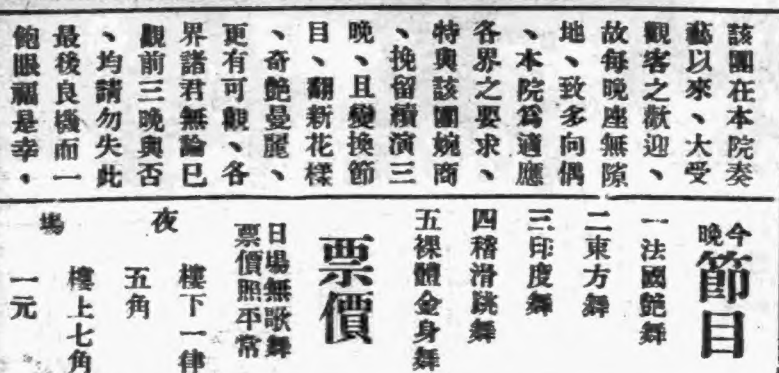 該團在本院奏
藝以來、大受
觀客之歡迎、
故每晚座無隙
地、致多向偶
、本院爲適應
各界之要求、
特與該團婉商
、挽留續演三
晚、且變換節
目、翻新花樣
、奇艶曼麗、
更有可觀、各
界諸君無論已
觀前三晚與否
、均請勿失此
最後良機而一
飽眼福是幸。
今晚節目
一法國艶舞
二東方舞
三印度舞
四稽滑跳舞
五裸體金身舞
票價
日場無歌舞
票價照平常
夜場
樓下一律
五角
樓上七角
一元